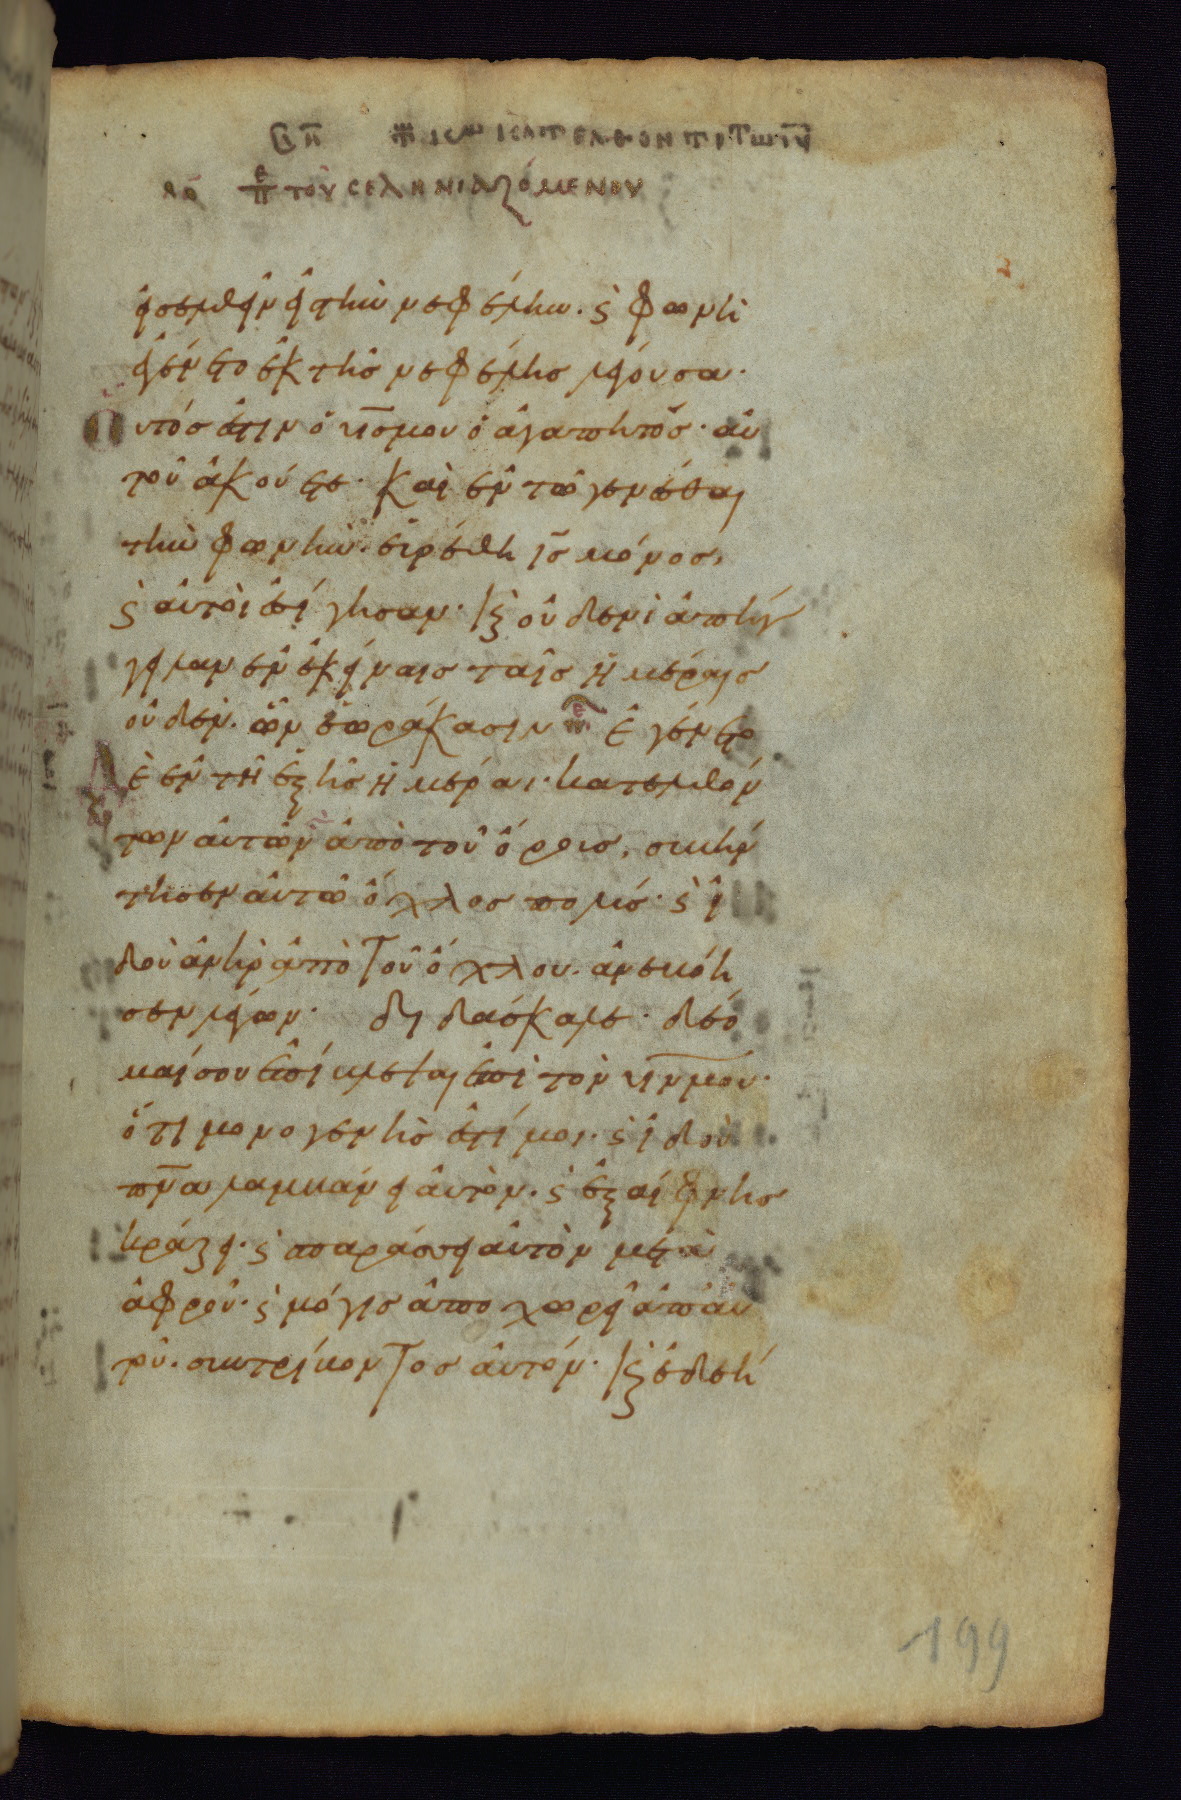 τοῦ σεληνιαζόμενου
εἰσελθεῖν εἰς τὴν νεφέλην. ϗ φωνὴ
ἐγένετο ἐκ τῆς νεφέλης λέγουσα·
Οὗτός ἐστιν ὁ υ̅ς̅ μου ὁ ἀγαπητός· αὐ
τοῦ ἀκούετε· καὶ ἐν τῶ γενέσθαι
τὴν φωνὴν. εὑρέθη ι̅ς̅ μόνος,
ϗ αὐτοὶ ἐσίγησαν· ϗ οὐδενὶ ἀπήγ
γειλαν ἐν ἐκείναις ταῖς ἡμέραις
οὐδὲν. ὧν ἑωράκασιν ἐγένετο
δὲ ἐν τῆ ἑξῆς ἡμέραι. κατελθόν
των αὐτῶν ἀπὸ τοῦ ὄρους, συνήν
τησεν αὐτῶ ὄχλος πολύς· ϗ ἰ
δοὺ ἀνὴρ ἀπὸ τοῦ ὄχλου. ἀνεβόη
σεν λέγων· διδάσκαλε· δέο
μαί σου ἐπίβλεψαι ἐπὶ τὸν υ̅ν̅ μου·
ὅτι μονογενὴς ἐστί μοι. ϗ ἰδοὺ
π̅ν̅α̅ λαμβάνει αὐτὸν. ϗ ἐξαίφνης
κράζει. ϗ σπαράσσει αὐτὸν μετὰ
ἀφροῦ. ϗ μόγις ἀποχωρεῖ ἀπ αὐ
τοῦ. συντρίβον αὐτόν. ϗ ἐδεή
199